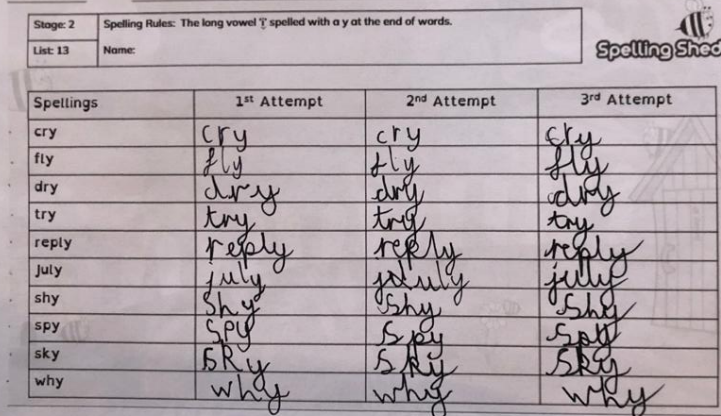 Stage: 2 Spelling Rules: The long vowel 'i' spelled with a y at the end of words.
List: 13 Name:
Spelling Shed
Spellings 1st Attempt 2nd Attempt 3rd Attempt
cry cry cry cry
fly fly fly fly
dry dry dry dry
try try try try
reply reply reply reply
July july july
shy shy shy shy
spy spy spy spy
sky sky sky sky
why why why why